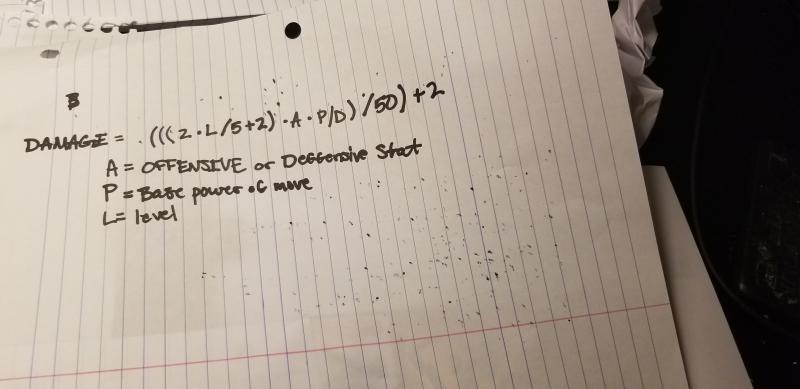 B
DAMAGE = (((2·L/5+2)·A·P/D)/50)+2
A = OFFENSIVE or Deffensive Start
P = Base power of move
L = level